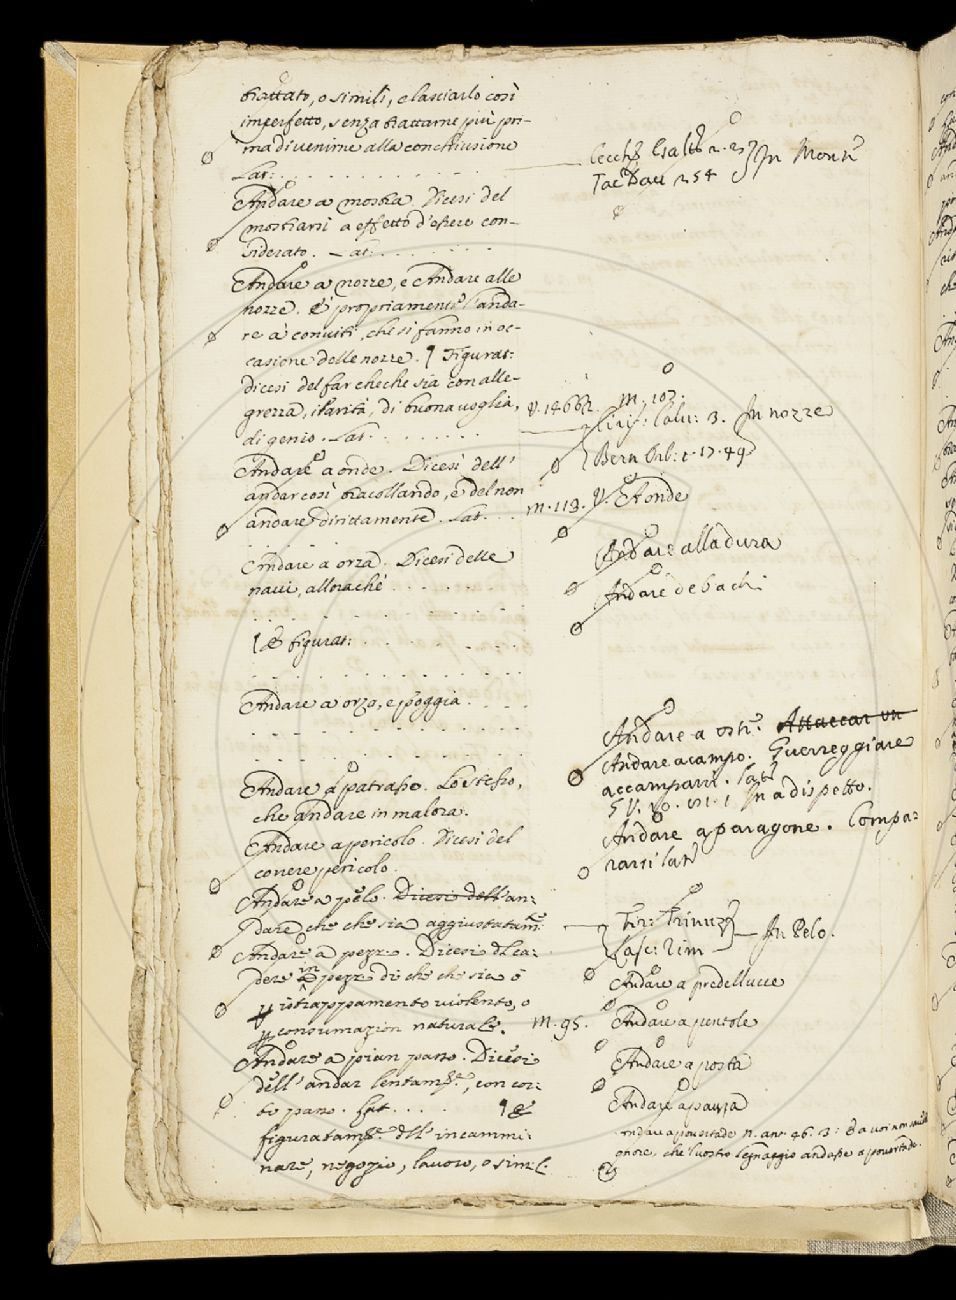 trattato, o simili, e lasciarlo così
imperfetto, senza trattarne più pri-
ma di venirne alla conchiusione
Lat:
Andare a mostra. Dicesi del
mostrarsi a effetto d'essere con-
siderato. Lat:
Andare a nozze, e Andare alle
nozze. È propriamente l'anda-
re a' conviti, che si fanno in oc-
casione delle nozze. ¶ Figurat:
dicesi del far checche sia con alle-
grezza, ilarità, di buona voglia,
di genio. Lat.
Andare a onde. Dicesi dell'
andar così tracollando, e del non
andare dirittamente. Lat.
Andare a orza. Dicesi delle
navi, allorachè
¶ E figurat:
Andare a orzo, e poggia
Andare a patrasso. Lo stesso,
che andare in malora.
Andare a pericolo. Dicesi del
correre pericolo.
Andare a pelo. Dicesi dell' an-
dare che che sia aggiustatam.e
Andare a pezzi. Dicesi del ca-
dere in pezzi di che che sia o
istrappamento violento, o
consumazion naturale.
Andare a pian passo. Dicesi
dell' andar lentam.e, con cor-
to passo. Lat. ¶ E
figuratam.e dell' incammi-
nare, negozio, lavoro, o simil.
Cecch. Esalt. 2. 2 In Mostr
Tac. Dav. 254
V. 1466. M. 103.
Cirif. Calv: 3. In nozze
Bern. Orl: 1. 17. 49
M. 113. V. A onde
Andare alla dura
Andare de bachi
Andare a oste. Attaccar un
Andare a campo. Guerreggiare
accamparsi. Lat.
In a dispetto.
Andare a paragone. Compa-
rarsi lat.
Fir: Trinuz.
Lasc: Rim In Pelo.
Andare a predellucce
M. 95. Andare a pentole
Andare a posta
Andare a pauza
che vostro legnaggio andasse a povertade.